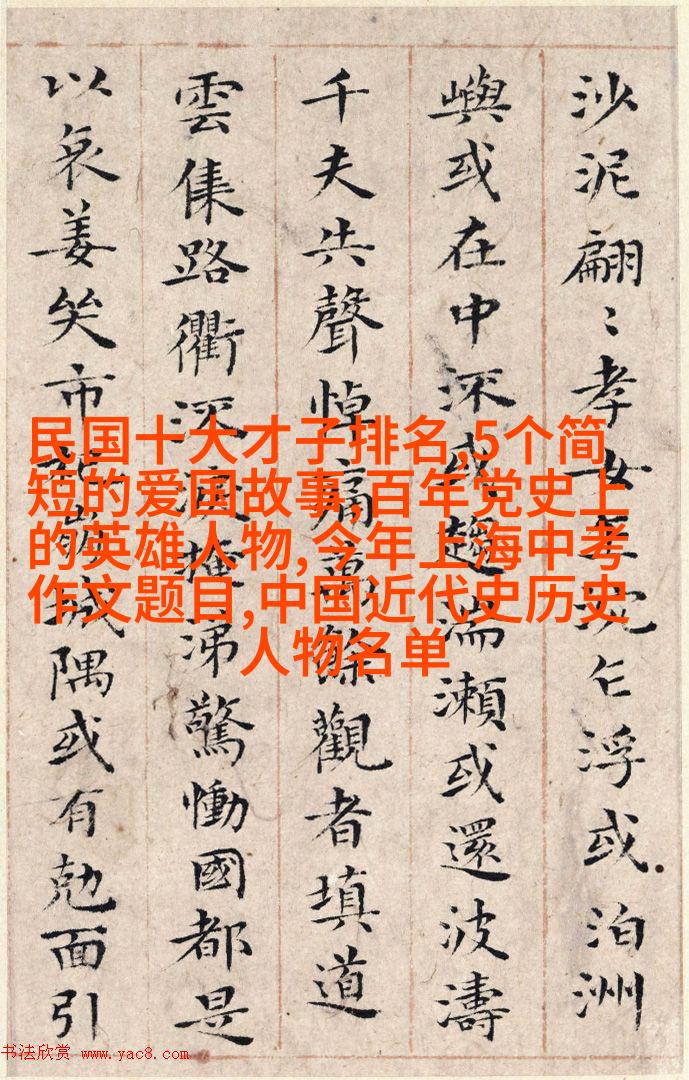 沙泥翩〻孝女乍沉乍浮或泊洲
嶼或在中深或趨湍瀨或還波濤
千夫失聲悼痛萬餘觀者填道
雲集路衢流淚掩涕驚慟國都是
以哀姜哭市杞崩城隅或有剋面引
民国十大才子排名,5个简
短的爱国故事,百年党史上
的英雄人物,今年上海中考
作文题目,中国近代史历史
人物名单
书法欣赏 www.yac8.com